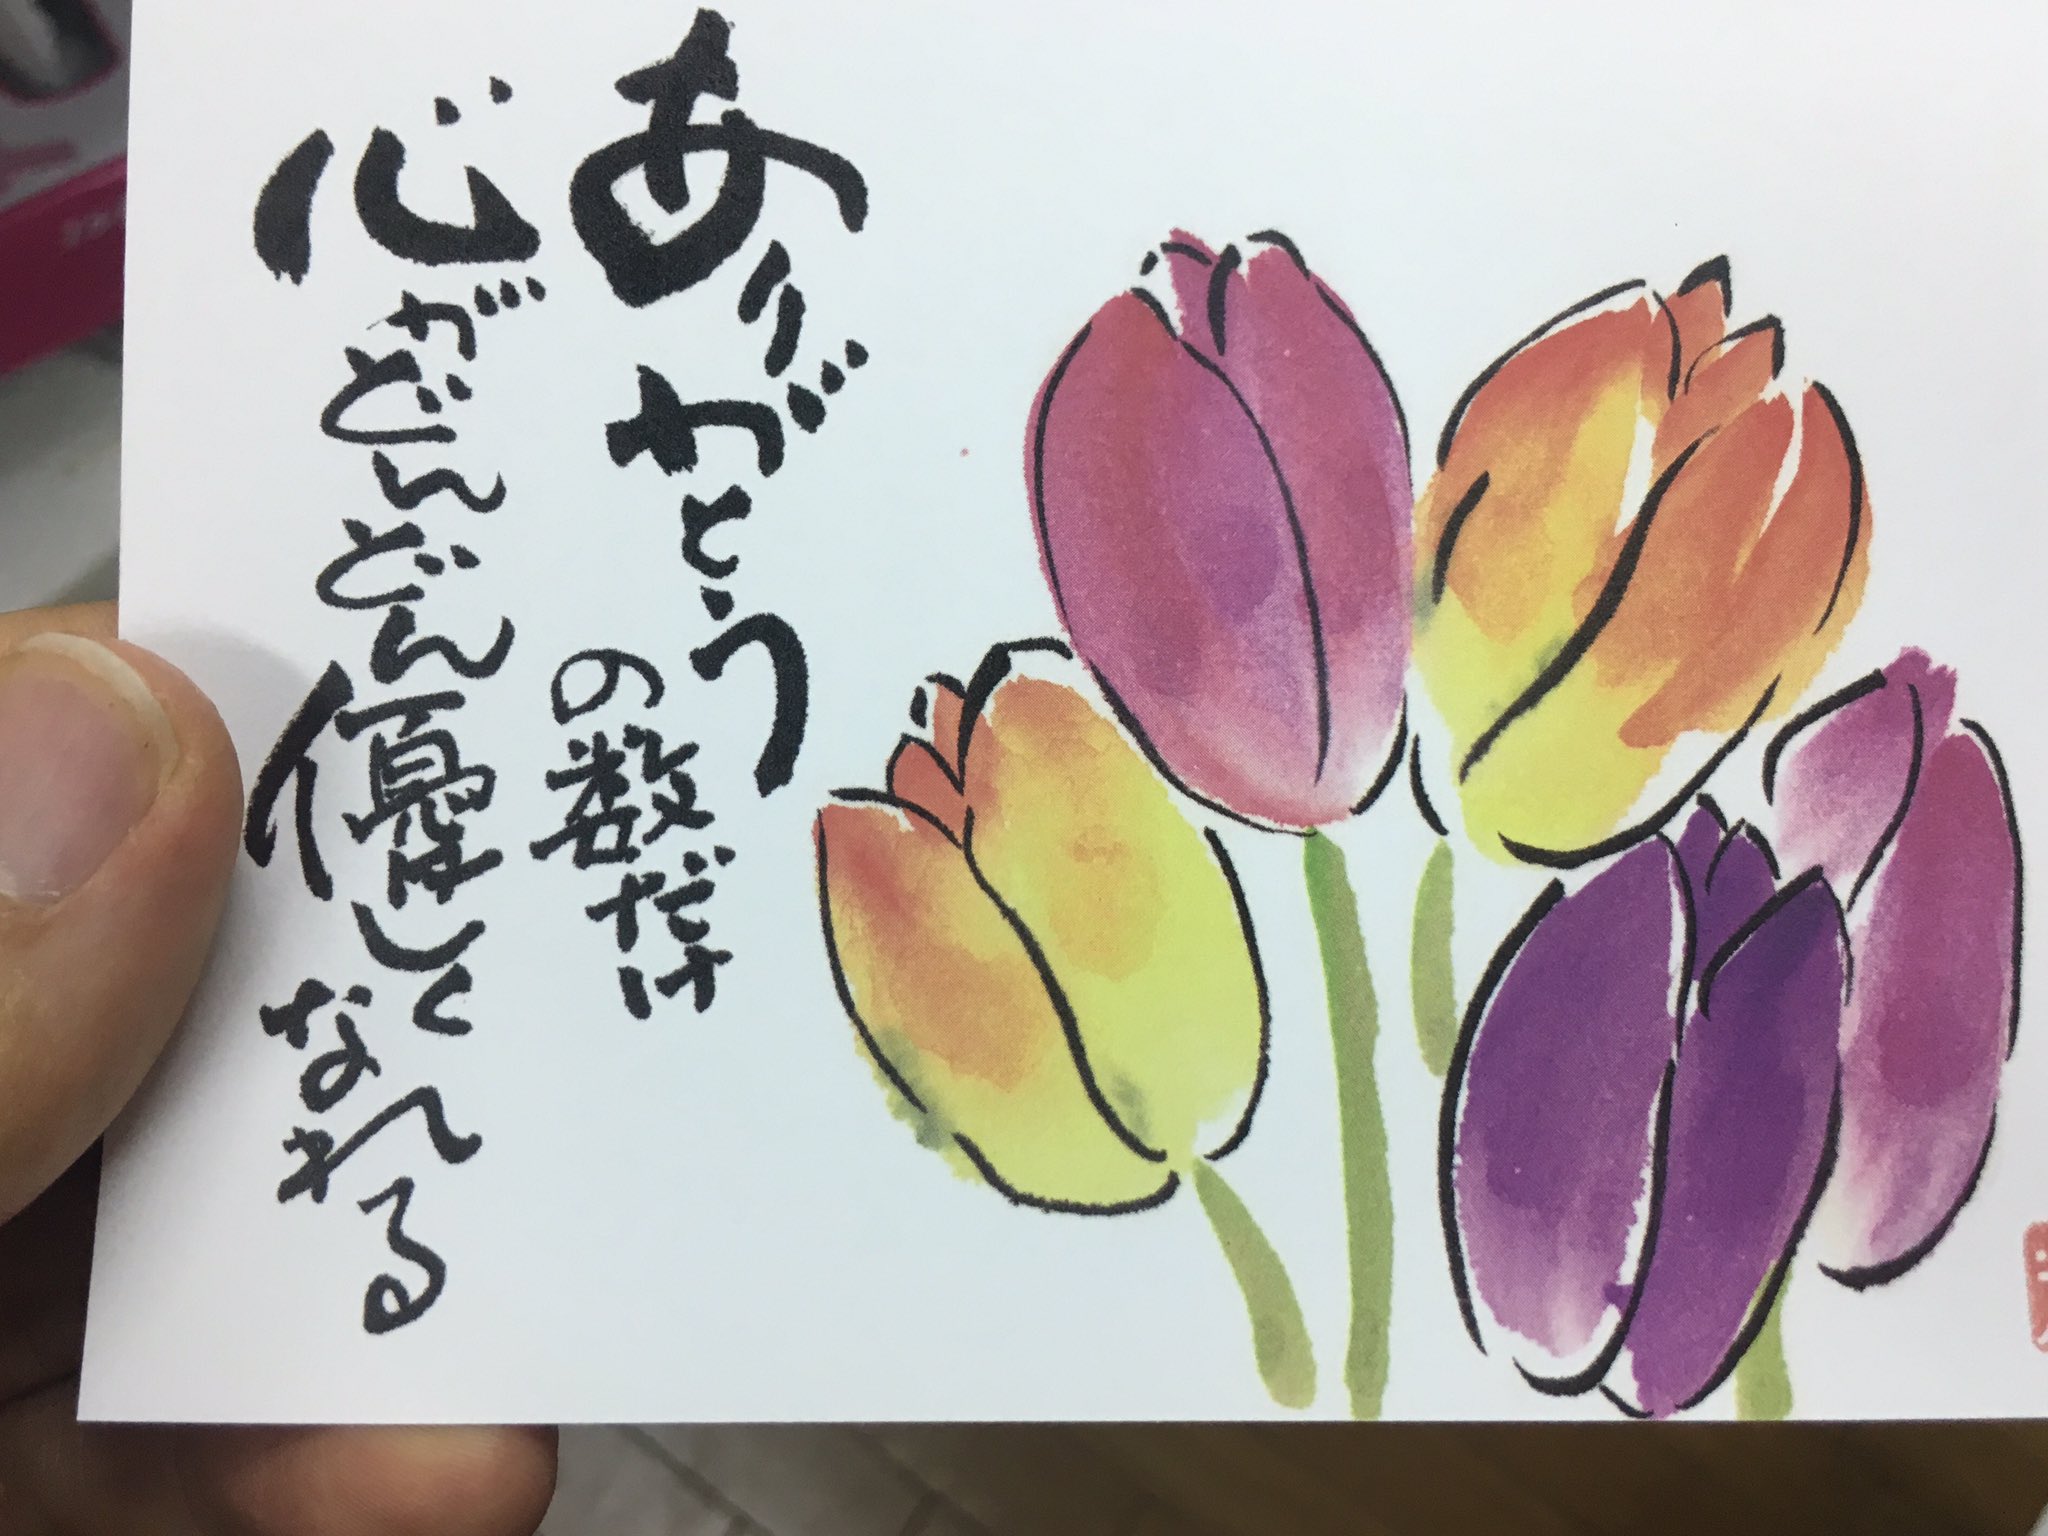 ありがとう
の数だけ
心がどんどん優しく
なれる